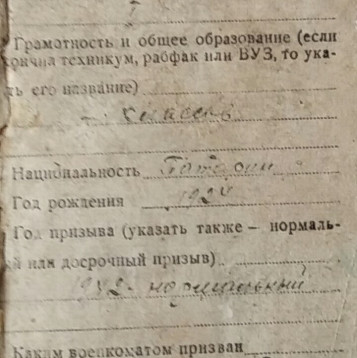 Грамотность и общее образование (если
кончил техникум, рабфак или ВУЗ, то ука-
ть его название)
классов
Национальность
Год рождения 1924
Год призыва (указать также – нормаль-
й или досрочный призыв)
1942- нормальный
Каким военкоматом призван